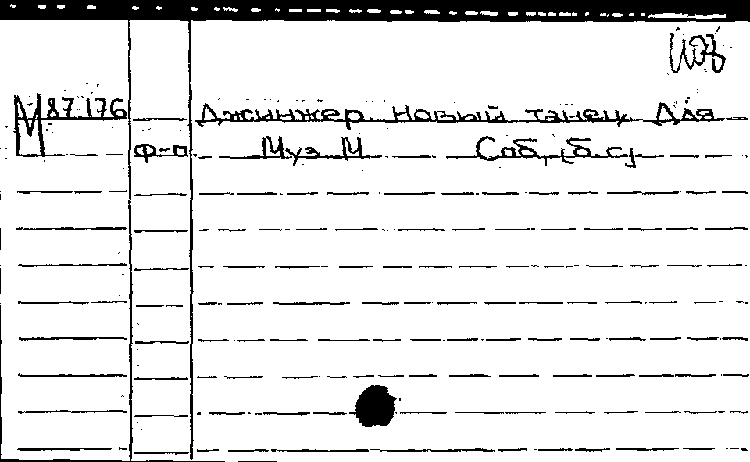 М 87.176 Джинжер. Новый танец. Для
ф-п. Муз. М. Спб., б. г.